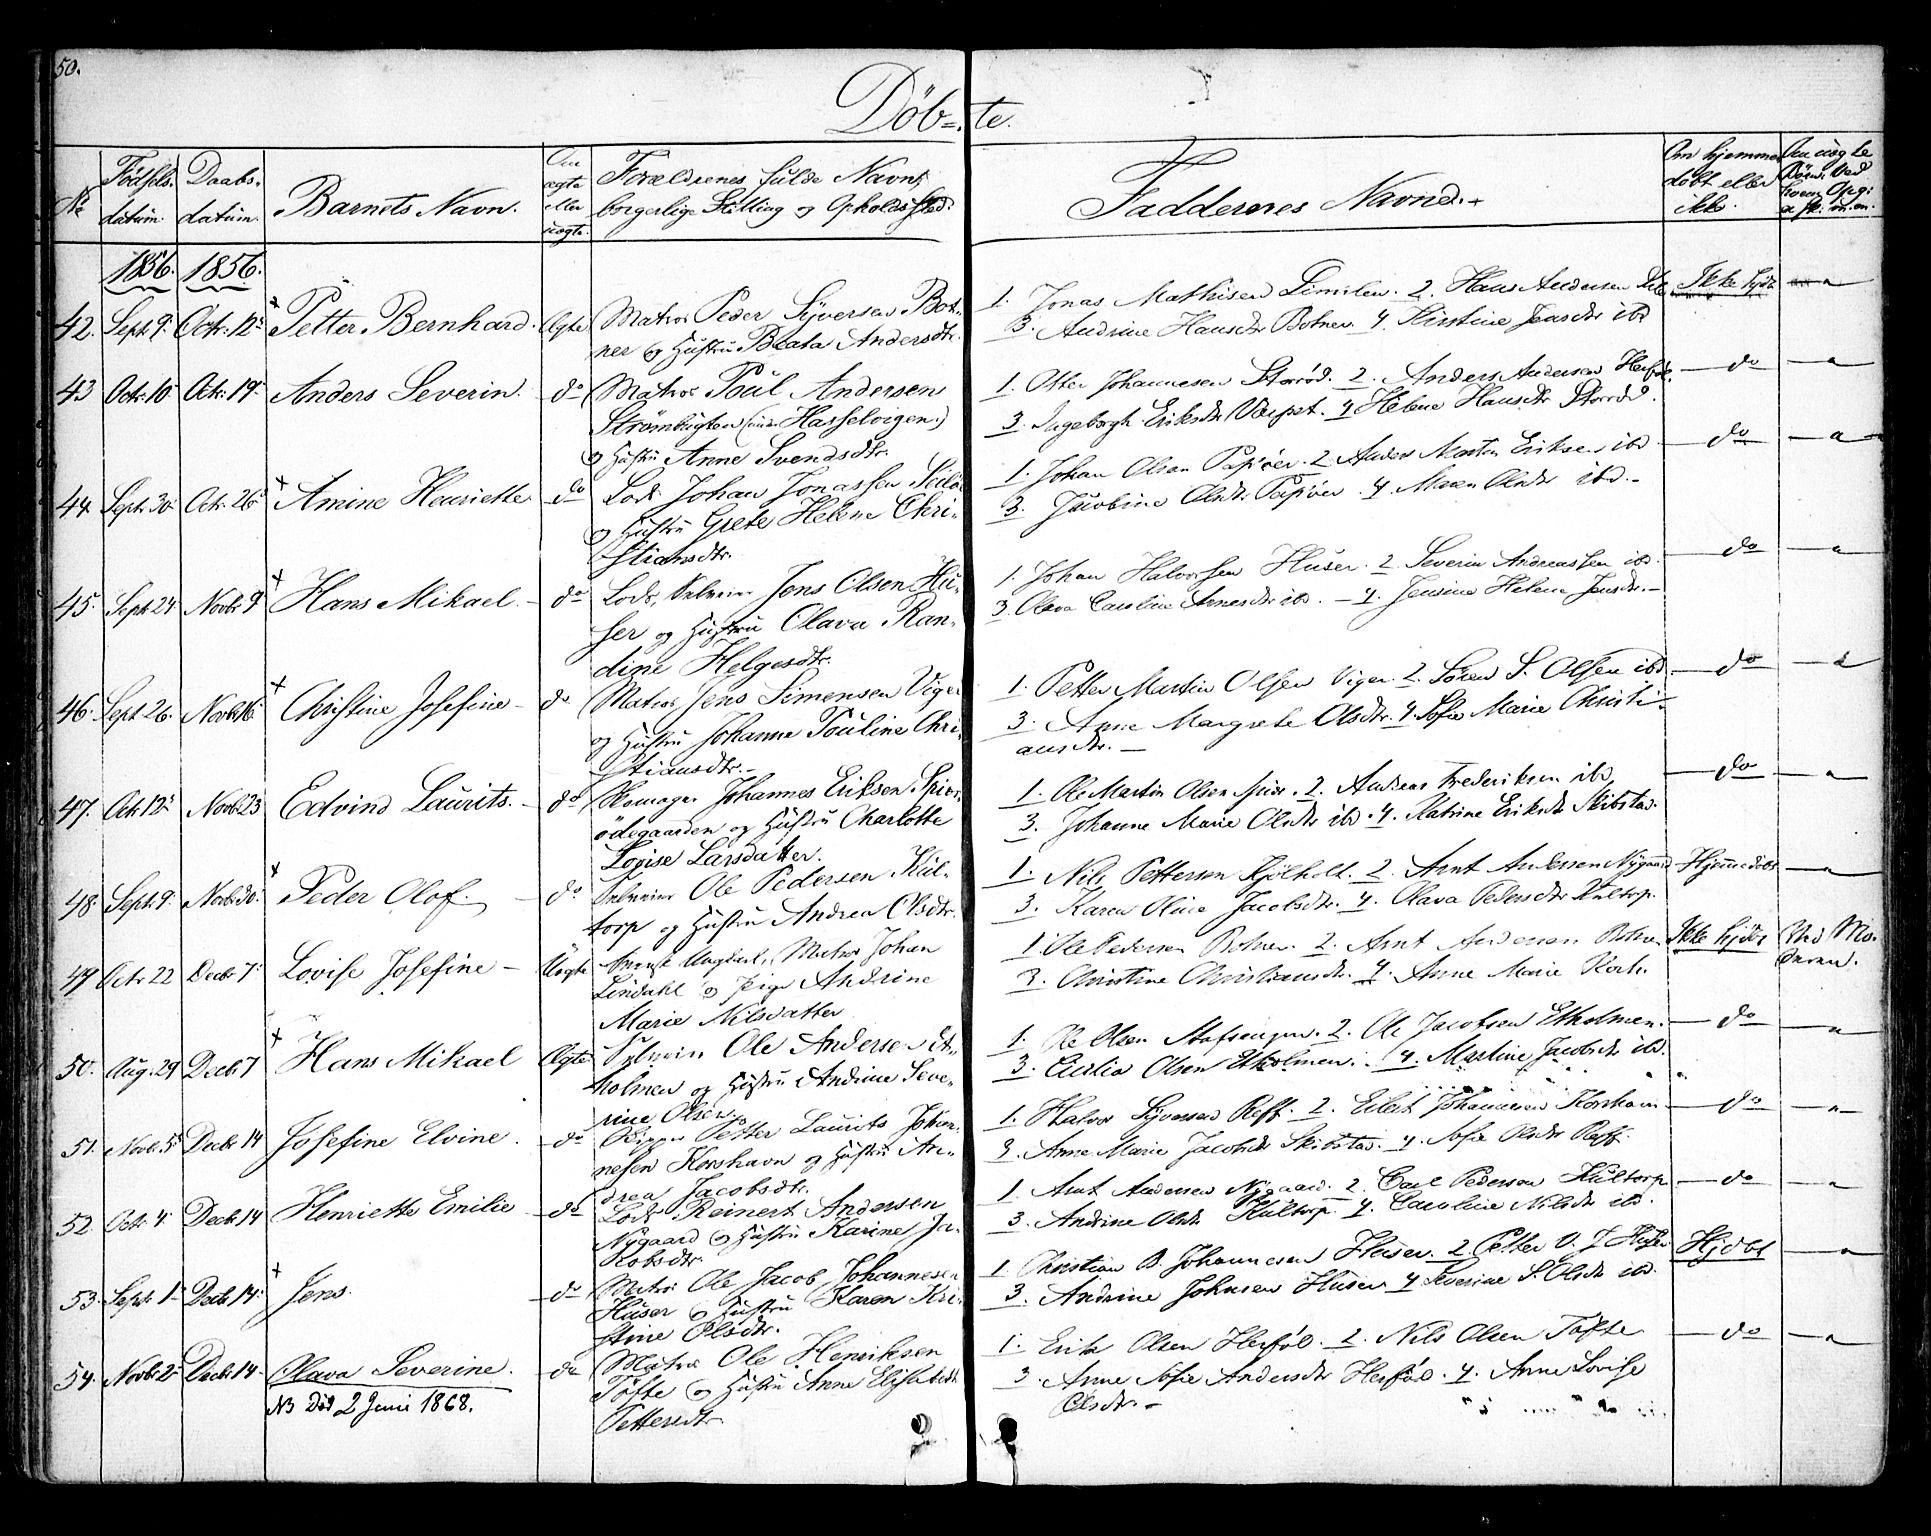 50.
Döb=te.
No
Födsels-datum.
Daabs-datum.
Barnets Navn.
Om ægte eller uægte.
Forældrenes fulde Navn, borgerlige Stilling og Opholds Sted.
Faddernes Navne.
Om hjemme döbt eller ikke.
1856. 1856.
42. Sept. 9. Octr. 12. Petter Bernhard. Ægte Matros Peder Syversen Bot-
ner og Hustru Beata Andersdtr.
1. Jonas Mathisen 2. Hans Andersen Ikke hjdt
3. Andrine Hansdtr Botner. 4. Kirstine Jensdtr ibd
43 Octr. 10. Octr. 19. Anders Severin. do Matros Poul Andersen
Strömbugten (under Hasselvigen.)
og Hustru Anne Svendsdtr.
1. Otter Johannesen Storröd. 2. Anders Andersen Herföl. do
3. Ingeborgh Eriksdtr 4 Helene Hansdtr Storröd.
44. Sept. 30. Octr. 26. Amine Henriette do Lods Johan Jonassen
og Hustru Grete Helene Chri-
stiansdtr.
1. Johan Olsen Papöer. 2 Anders Martin Eriksen ibd do
3. Jacobine Olsdtr Papöer. 4. Maren Olsdtr ibd.
45. Sept. 24. Novbr. 9 Hans Mikael. do Lods, Selveier Jens Olsen Hu-
ser og Hustru Olava Ran-
dine Helgesdtr.
1. Johan Halvorsen Huser. 2 Severin Andreassen ibd. do
3. Olava Caroline Arnesdtr ibd. 4. Jensine Helene Jensdtr.
46. Sept. 26. Novbr. 16. Christine Josefine do Matros Jens Simensen Viger
og Hustru Johanne Pouline Chri-
stiansdtr.
1. Petter Martin Olsen Viger. 2. Sören S. Olsen ibd do
3. Anne Margrete Olsdtr. 4. Sofie Marie Christi-
ansdtr.
47. Octr. 12. Novbr. 23 Edvind Laurits. do Johannes Eriksen
ödegaarden og Hustru Charlotte
Lovise Larsdatter.
1. Ole Martin Olsen 2. Andreas Frederiksen ibd do
3. Johanne Marie Olsdtr ibd. 4. Katrine Eriksdtr Skibstad.
48. Sept. 9. Novbr. 30. Peder Olof. do Selveier Ole Pedersen Kul-
torp og Hustru Andrea Olsdtr.
1. Nils Pettersen Kjölholt. 2. Arnt Andersen Nygaard Hjemmedöbt
3. Karen Oline Jacobsdtr. 4. Olava Pedersdtr Kultorp.
49 Octr. 22 Decbr. 7. Lovise Josefine Uægte Svensk Ungkarl, Matros Johan
Lindahl og Pige Andrine
Marie Nilsdatter
1. Ole Pedersen Botner. 2. Arnt Andersen Botner Ikke hjdöbt Ved Mo-
deren.
3. Christine Christiansdtr. 4. Anne Marie Koch.
50. Aug. 29 Decbr. 7 Hans Mikael Ægte Selveier Ole Andersen Et-
holmen og Hustru Andrine Seve-
rine Olsen.
1. Ole Olsen Stafsengen. 2. Ole Jacobsen Etholmen. do
3. Olsen Etholmen. 4. Martine Jacobsdtr ibd.
51. Novbr. 5 Decbr. 14 Josefine Elvine. do Skipper Petter Laurits Johan-
nesen Korshavn og Hustru An-
drea Jacobsdtr.
1. Halvor Syversen Reff. 2. Eilert Johannesen Korshavn do
3. Anne Marie Jacobsdtr Skibstad. 4. Sofie Olsdtr Reff.
52. Octr. 4. Decbr. 14 Henriette Emilie do Lods Reinert Andersen
Nygaard og Hustru Karine Ja-
kobsdtr.
1. Arnt Andersen Nygaard. 2. Carl Pedersen Kultorp do
3. Andrine Olsdtr Kultorp. 4. Caroline Nilsdtr ibd.
53. Sept. 1 Decbr. 14. Jens. do Matros Ole Jacob Johannesen
Huser og Hustru Karen Kri-
stine Olsdtr.
1 Christian B. Johannesen Huser. 2 Petter O. J. Huser Hjdbt
3. Andrine Johnsen Huser 4 Severine S. Olsdtr ibd.
54. Novbr. 2. Decbr. 14. Olava Severine. do Matros Ole Henriksen
Töfte og Hustru Anne Elisabeth
Pettersdtr
NB Död 2 Juni 1868.
1. Erik Olsen Herföl. 2. Nils Olsen Töfte do
3. Anne Sofie Andersdtr Herföl. 4. Anne Lovise
Olsdtr.